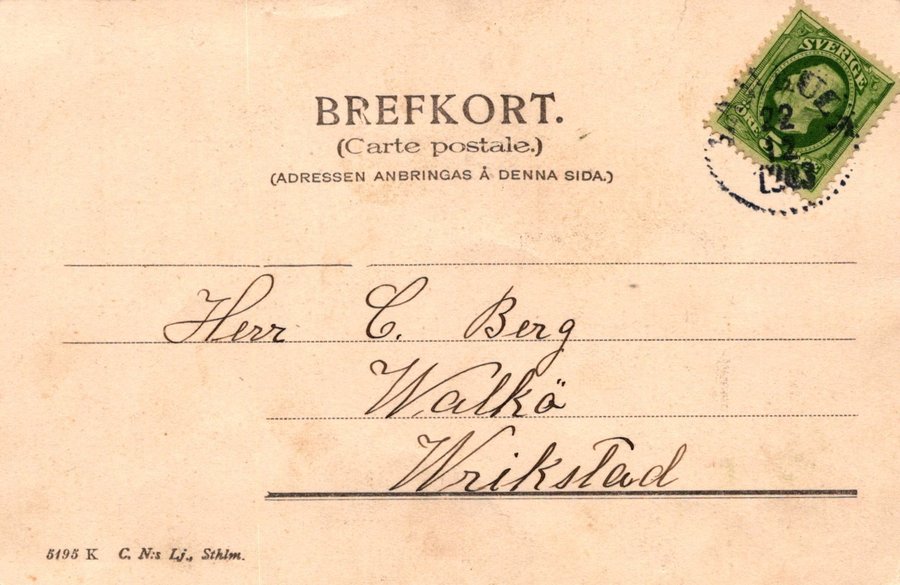 BREFKORT.
(Carte postale.)
(ADRESSEN ANBRINGAS Å DENNA SIDA.)
SVERIGE
ÖRE
22
12
1903
Herr C. Berg
Walkö
Wrikstad
5195 K C. N:s Lj., Sthlm.